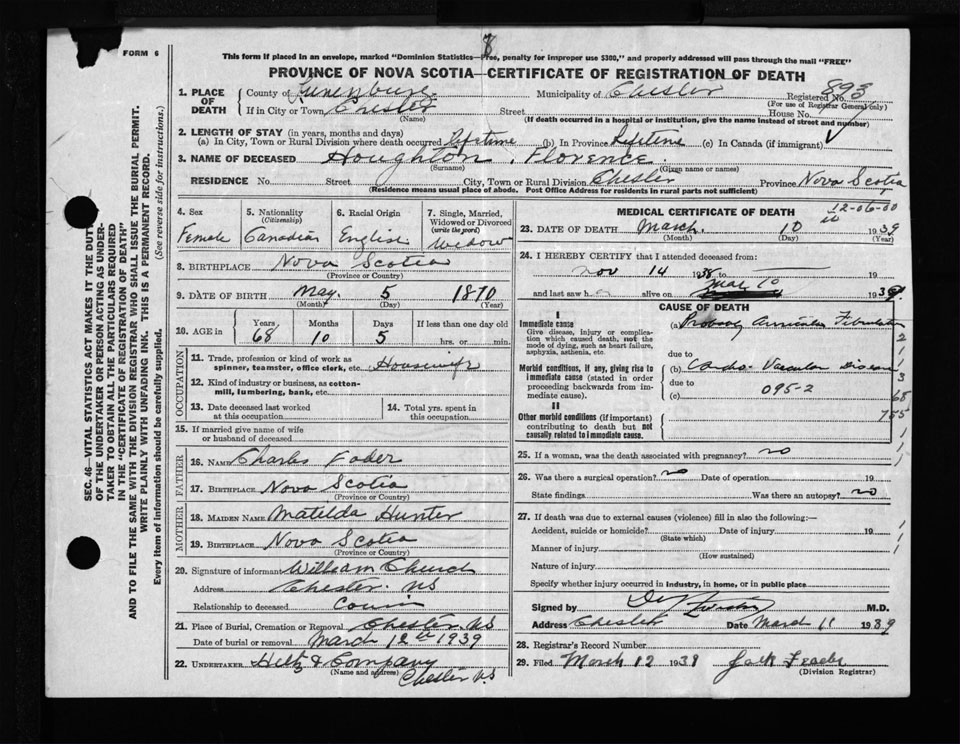 FORM 6
This form if placed in an envelope, marked "Dominion Statistics—Free, penalty for improper use $300," and properly addressed will pass through the mail "FREE"
PROVINCE OF NOVA SCOTIA—CERTIFICATE OF REGISTRATION OF DEATH
1. PLACE OF DEATH
County of Lunenburg Municipality of Chester Registered No. 893
(For use of Registrar General only)
If in City or Town Chester Street House No.
(Name) (If death occurred in a hospital or institution, give the name instead of street and number)
2. LENGTH OF STAY (in years, months and days)
(a) In City, Town or Rural Division where death occurred lifetime (b) In Province Lifetime (c) In Canada (if immigrant)
3. NAME OF DECEASED Houghton, Florence.
(Surname) (Given name or names)
RESIDENCE No. Street City, Town or Rural Division Chester Province Nova Scotia
(Residence means usual place of abode. Post Office Address for residents in rural parts not sufficient)
4. Sex
Female
5. Nationality
(Citizenship)
Canadian
6. Racial Origin
English
7. Single, Married, Widowed or Divorced
(write the word)
Widow
8. BIRTHPLACE Nova Scotia
(Province or Country)
9. DATE OF BIRTH May 5 1870
(Month) (Day) (Year)
10. AGE in
Years Months Days If less than one day old
68 10 5 hrs. or min.
OCCUPATION
11. Trade, profession or kind of work as
spinner, teamster, office clerk, etc. Housewife
12. Kind of industry or business, as cotton-
mill, lumbering, bank, etc.
13. Date deceased last worked
at this occupation
14. Total yrs. spent in
this occupation
15. If married give name of wife
or husband of deceased
FATHER
16. NAME Charles Fader
17. BIRTHPLACE Nova Scotia
(Province or Country)
MOTHER
18. MAIDEN NAME Matilda Hunter
19. BIRTHPLACE Nova Scotia
(Province or Country)
20. Signature of informant William Church
Address Chester. NS
Relationship to deceased Cousin
21. Place of Burial, Cremation or Removal Chester. NS
Date of burial or removal March 12th 1939
22. UNDERTAKER Hiltz & Company
(Name and address) Chester NS
MEDICAL CERTIFICATE OF DEATH
12-06-00
23. DATE OF DEATH March. 10 1939
(Month) (Day) (Year)
24. I HEREBY CERTIFY that I attended deceased from:
Nov 14 1938 to 19
and last saw h alive on Mar 10 1939.
CAUSE OF DEATH
I
Immediate cause
Give disease, injury or complica-
tion which caused death, not the
mode of dying, such as heart failure,
asphyxia, asthenia, etc.
(a) Probably Auricular Fibrillation
due to
Morbid conditions, if any, giving rise to
immediate cause (stated in order
proceeding backwards from im-
mediate cause).
(b) Cardio-Vascular Disease
due to
(c) 095-2
II
Other morbid conditions (if important)
contributing to death but not
causally related to immediate cause.
2
1
1
3
68
755
25. If a woman, was the death associated with pregnancy? no
26. Was there a surgical operation? no Date of operation 19
State findings Was there an autopsy? no
27. If death was due to external causes (violence) fill in also the following:—
Accident, suicide or homicide? Date of injury 19
(State which)
Manner of injury
(How sustained)
Nature of injury
Specify whether injury occurred in industry, in home, or in public place
Signed by M.D.
Address Chester Date March 11 1939
28. Registrar's Record Number
29. Filed March 12 1938
(Division Registrar)
SEC. 46—VITAL STATISTICS ACT MAKES IT THE DUTY
OF THE UNDERTAKER OR PERSON ACTING AS UNDER-
TAKER TO OBTAIN ALL THE PARTICULARS REQUIRED
IN THE "CERTIFICATE OF REGISTRATION OF DEATH"
AND TO FILE THE SAME WITH THE DIVISION REGISTRAR WHO SHALL ISSUE THE BURIAL PERMIT.
WRITE PLAINLY WITH UNFADING INK. THIS IS A PERMANENT RECORD.
Every item of information should be carefully supplied. (See reverse side for instructions.)